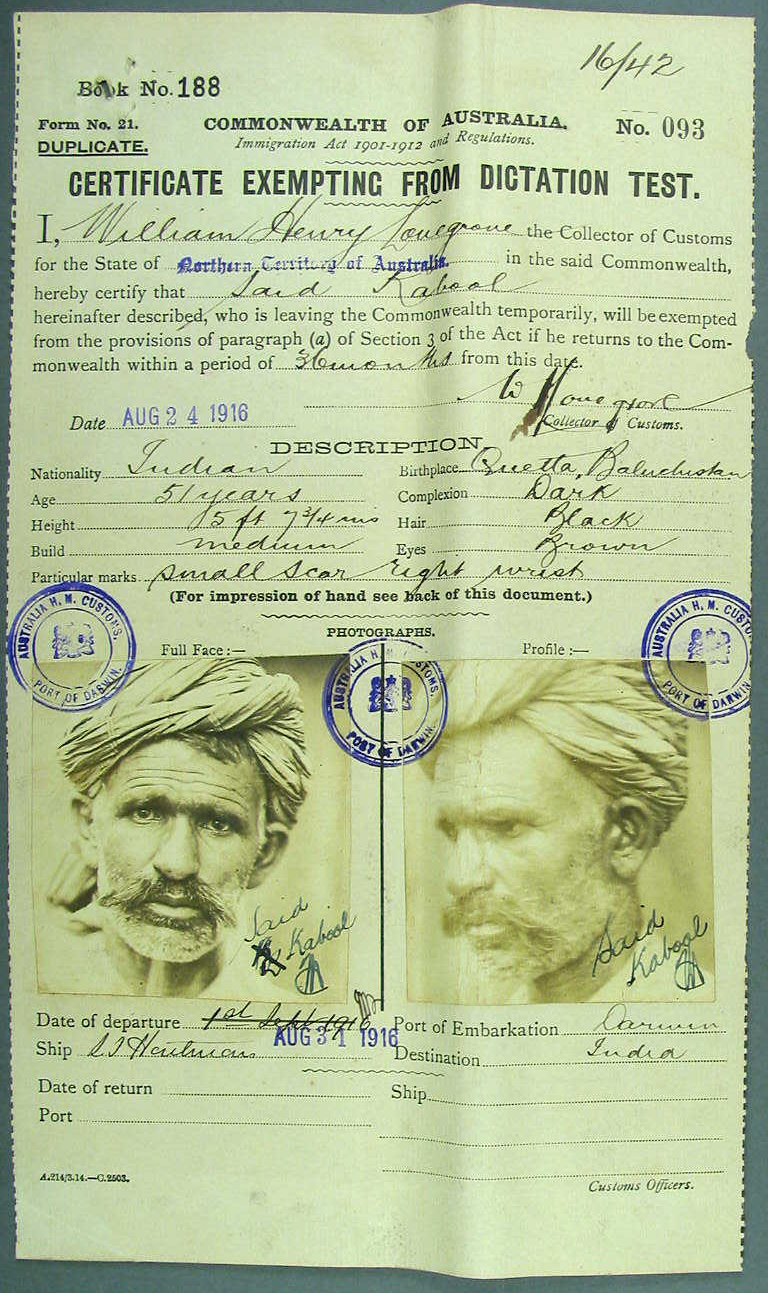 16/42
Book No. 188
Form No. 21.
COMMONWEALTH OF AUSTRALIA.
No. 093
DUPLICATE.
Immigration Act 1901-1912 and Regulations.
CERTIFICATE EXEMPTING FROM DICTATION TEST.
I, William Henry Lovegrove the Collector of Customs
for the State of Northern Territory of Australia. in the said Commonwealth,
hereby certify that Said Kabool
hereinafter described, who is leaving the Commonwealth temporarily, will be exempted
from the provisions of paragraph (a) of Section 3 of the Act if he returns to the Com-
monwealth within a period of 36 months from this date.
W H Lovegrove
Date AUG 24 1916
Collector of Customs.
DESCRIPTION
Nationality Indian
Birthplace Quetta, Baluchistan
Age 51 years
Complexion Dark
Height 5 ft 7 3/4 ins
Hair Black
Build medium
Eyes Brown
Particular marks small scar right wrist
(For impression of hand see back of this document.)
PHOTOGRAPHS.
Full Face :—
Profile :—
AUSTRALIA H. M. CUSTOMS.
PORT OF DARWIN.
AUSTRALIA H. M. CUSTOMS.
PORT OF DARWIN.
AUSTRALIA H. M. CUSTOMS.
PORT OF DARWIN
Said
Kabool
Said
Kabool
Date of departure 1st Sept 1916
AUG 31 1916
Port of Embarkation Darwin
Ship SS Houtman
Destination India
Date of return
Ship
Port
A.214/3.14.—C.2503.
Customs Officers.